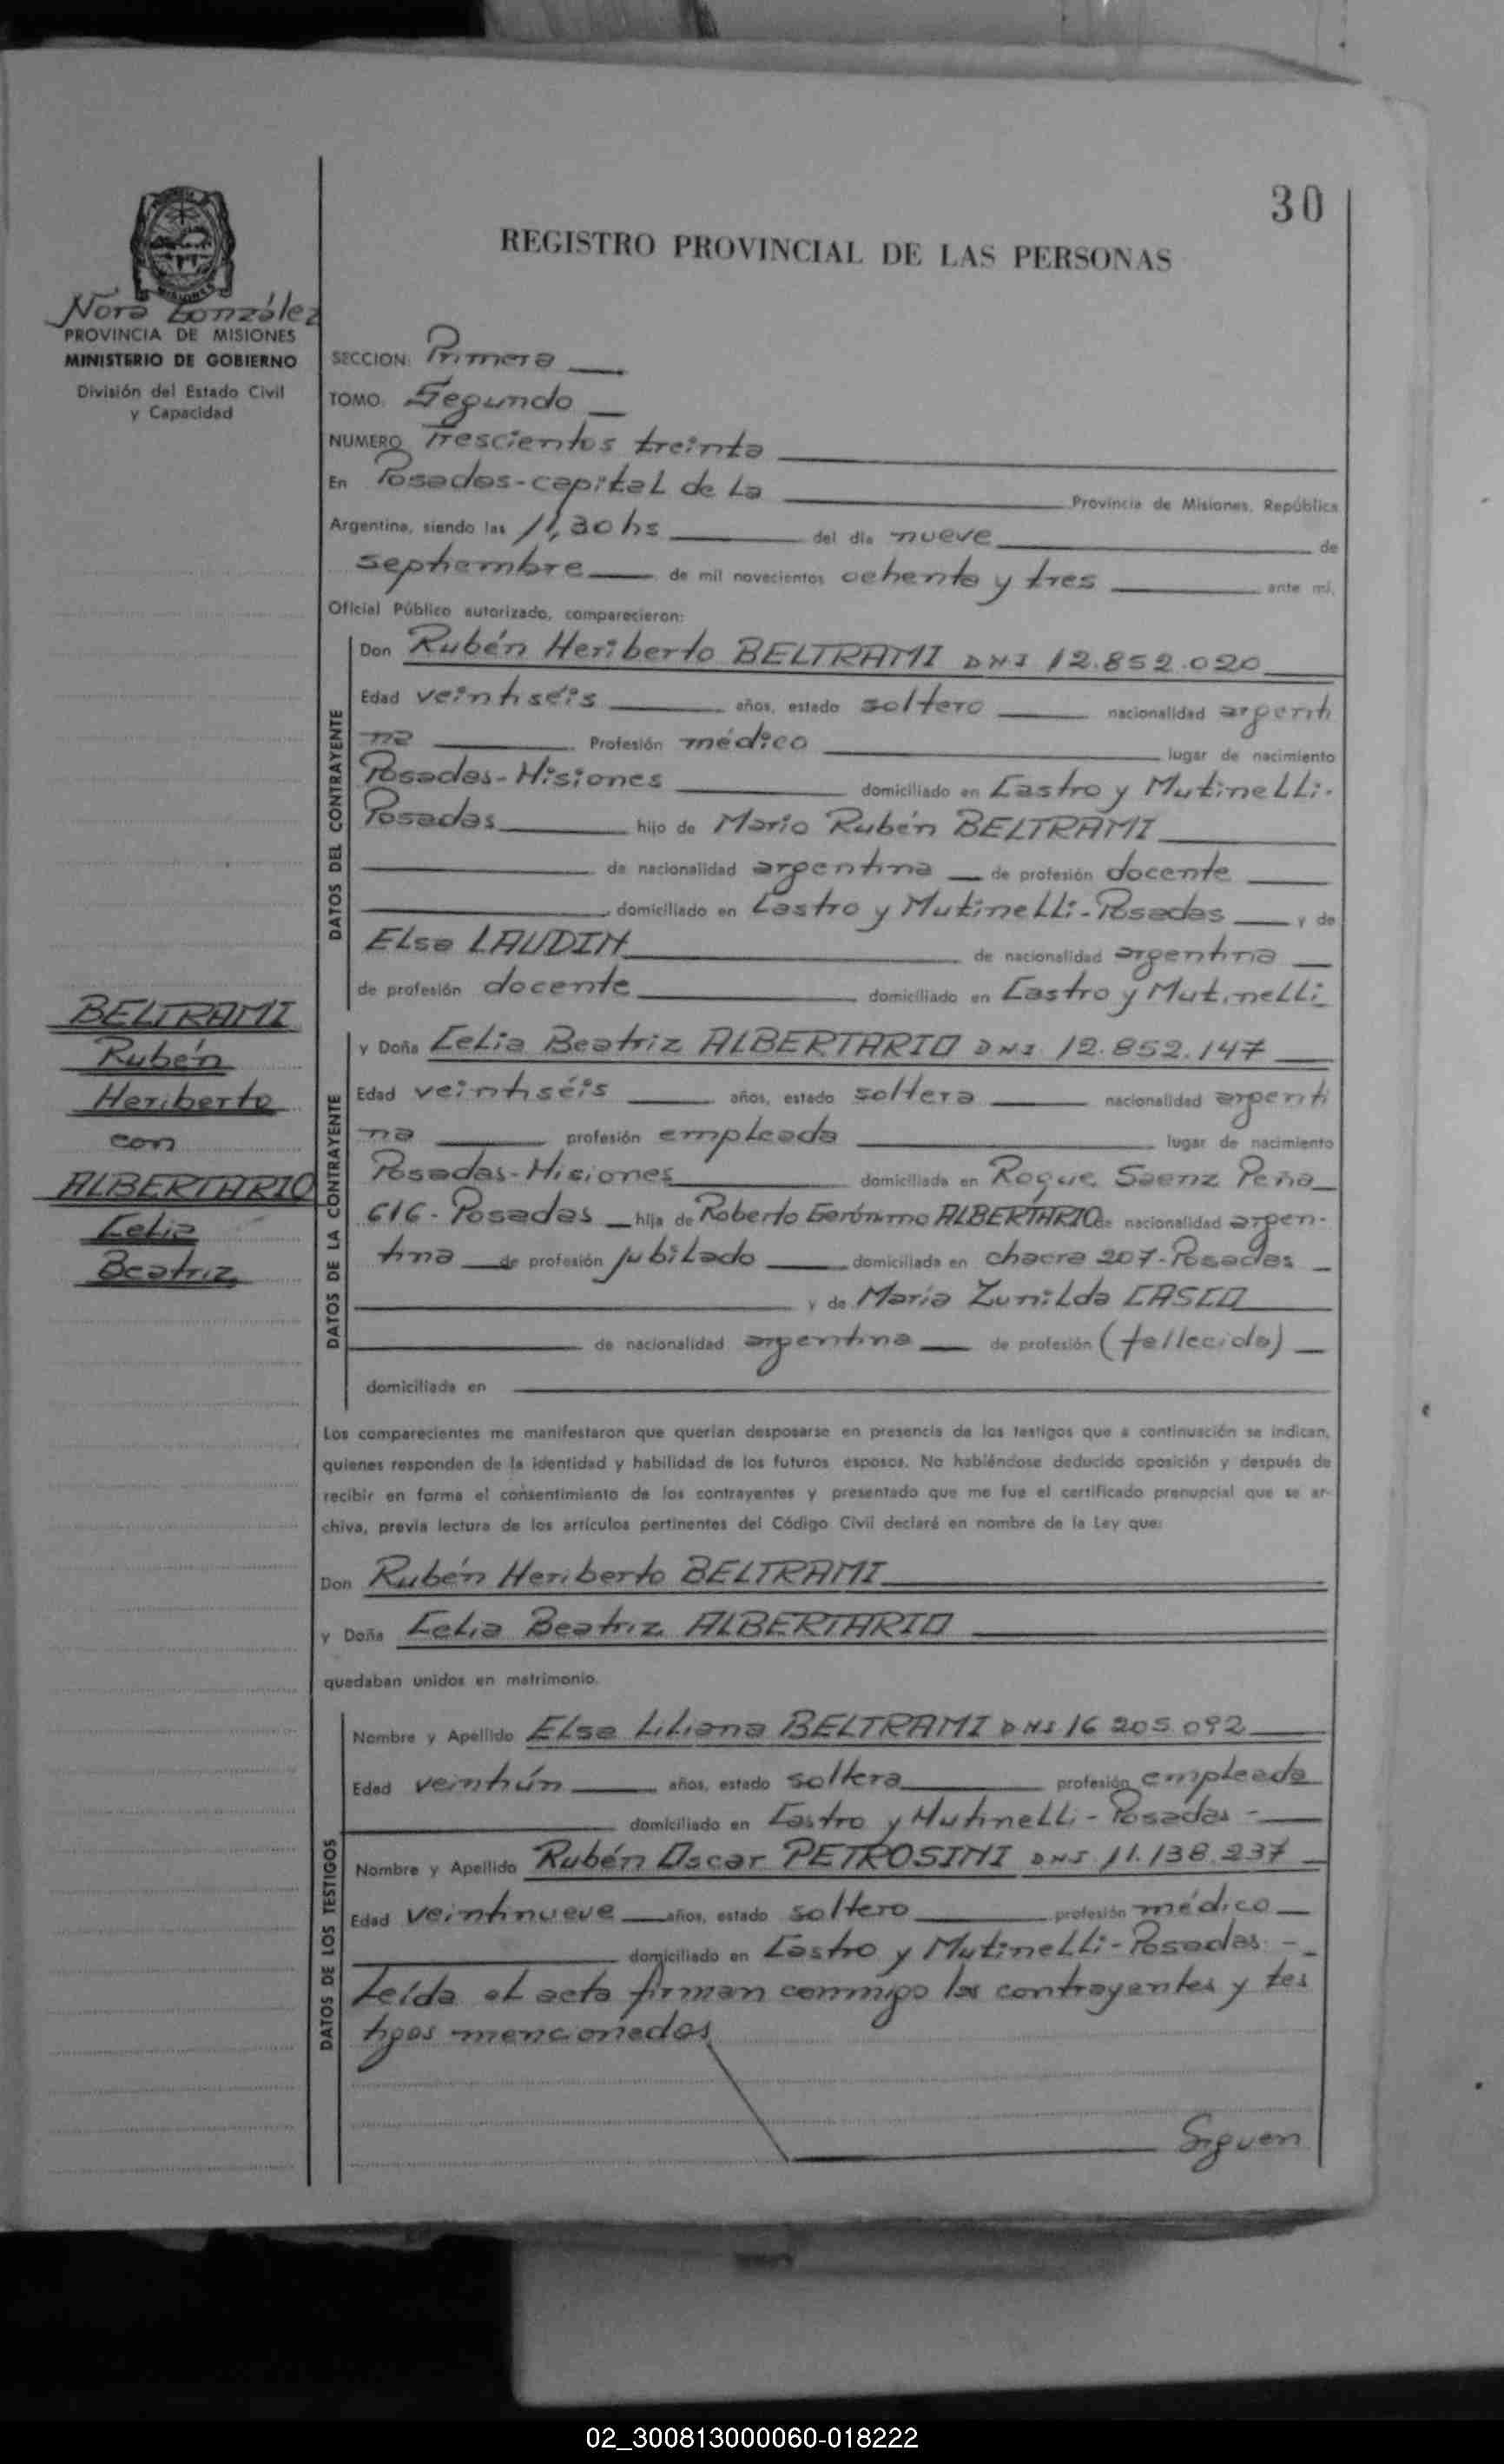 30
REGISTRO PROVINCIAL DE LAS PERSONAS
MISIONES
Nora González
PROVINCIA DE MISIONES
MINISTERIO DE GOBIERNO
División del Estado Civil
y Capacidad
SECCION: Primera
TOMO: Segundo
NUMERO Trescientos treinta
En Posadas-capital de la Provincia de Misiones, República
Argentina, siendo las 11,30 hs del día nueve de
septiembre de mil novecientos ochenta y tres ante mí,
Oficial Público autorizado, comparecieron:
DATOS DEL CONTRAYENTE
Don Rubén Heriberto BELTRAMI DNI 12.852.020
Edad veintiséis años, estado soltero nacionalidad argenti
na Profesión médico lugar de nacimiento
Posadas-Misiones domiciliado en Castro y Mutinelli.
Posadas hijo de Mario Rubén BELTRAMI
de nacionalidad argentina de profesión docente
domiciliado en Castro y Mutinelli-Posadas y de
Elsa LAUDIN de nacionalidad argentina
de profesión docente domiciliado en Castro y Mutinelli
BELTRAMI
Rubén
Heriberto
con
ALBERTARIO
Celia
Beatriz
DATOS DE LA CONTRAYENTE
y Doña Celia Beatriz ALBERTARIO DNI 12.852.147
Edad veintiséis años, estado soltera nacionalidad argenti
na profesión empleada lugar de nacimiento
Posadas-Misiones domiciliada en Roque Saenz Peña
616- Posadas hija de Roberto Gerónimo ALBERTARIO de nacionalidad argen-
tina de profesión jubilado domiciliada en chacra 207-Posadas
y de María Zunilda CASCO
de nacionalidad argentina de profesión (fallecida)
domiciliada en
Los comparecientes me manifestaron que querían desposarse en presencia de los testigos que a continuación se indican,
quienes responden de la identidad y habilidad de los futuros esposos. No habiéndose deducido oposición y después de
recibir en forma el consentimiento de los contrayentes y presentado que me fue el certificado prenupcial que se ar-
chiva, previa lectura de los artículos pertinentes del Código Civil declaré en nombre de la Ley que:
Don Rubén Heriberto BELTRAMI
y Doña Celia Beatriz ALBERTARIO
quedaban unidos en matrimonio.
DATOS DE LOS TESTIGOS
Nombre y Apellido Elsa Liliana BELTRAMI DNI 16 205.092
Edad veintiún años, estado soltera profesión empleada
domiciliado en Castro y Mutinelli - Posadas -
Nombre y Apellido Rubén Oscar PETROSINI DNI 11.138.237
Edad veintinueve años, estado soltero profesión médico
domiciliado en Castro y Mutinelli-Posadas -
Leída el acta firman conmigo los contrayentes y tes
tigos mencionados
Siguen
02_300813000060-018222